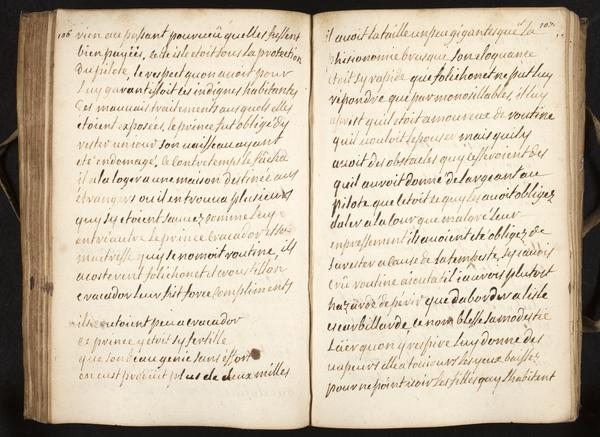 106
rien au passant pourvuü quelles fussent
bien payées, cette isle etoit sous la protection
du pilote, le respect quon auoit pour
luy garantissoit ces indignes habitantes
des mauuais traitements aus quels elles
etoient exposées, le prince fut obligé dy
rester un jour son vaisseau ayant
été endomagé, le contretemps le facha
il ala loger a une maison destinée aus
étrangers ou il en trouua plusieurs
quy sy etoient sauuez comme luy
entriautre le prince cracador et sa
maitresse quy se nomoit routine, ils
acosterent folichon et
cracador leur fit force compliments
ils coutoient peu a cracador
ce prince y etoit sy fertille
que son beau genie sans effort
en eust produit plus de deux milles
107
il auoit la taille un peu gigantesque la
phisionomie brusque son eloquance
étoit sy rapide que folichon et ne put luy
répondre que par monosillables, il luy
aprit quil etoit amoureux de routine
quil vouloit lepouser mais quil y
auoit des obstacles quy cesseroient des
quil auroit donné de largeant au
pilote que cetoit ce quy les auoit obligez
daler a la cour que malgré leur
empressement ils auoient été obligez de
sarester a cause de la tempeste, sy jauois
crû routine ajouta til jaurois plutost
hazardé de périr que daborder a lisle
escarbillarde, ce nom blesse la modestie
lair quon y respire luy donne des
vapeurs elle a toujours les yeux baissez
pour ne point voir les filles quy lhabitent